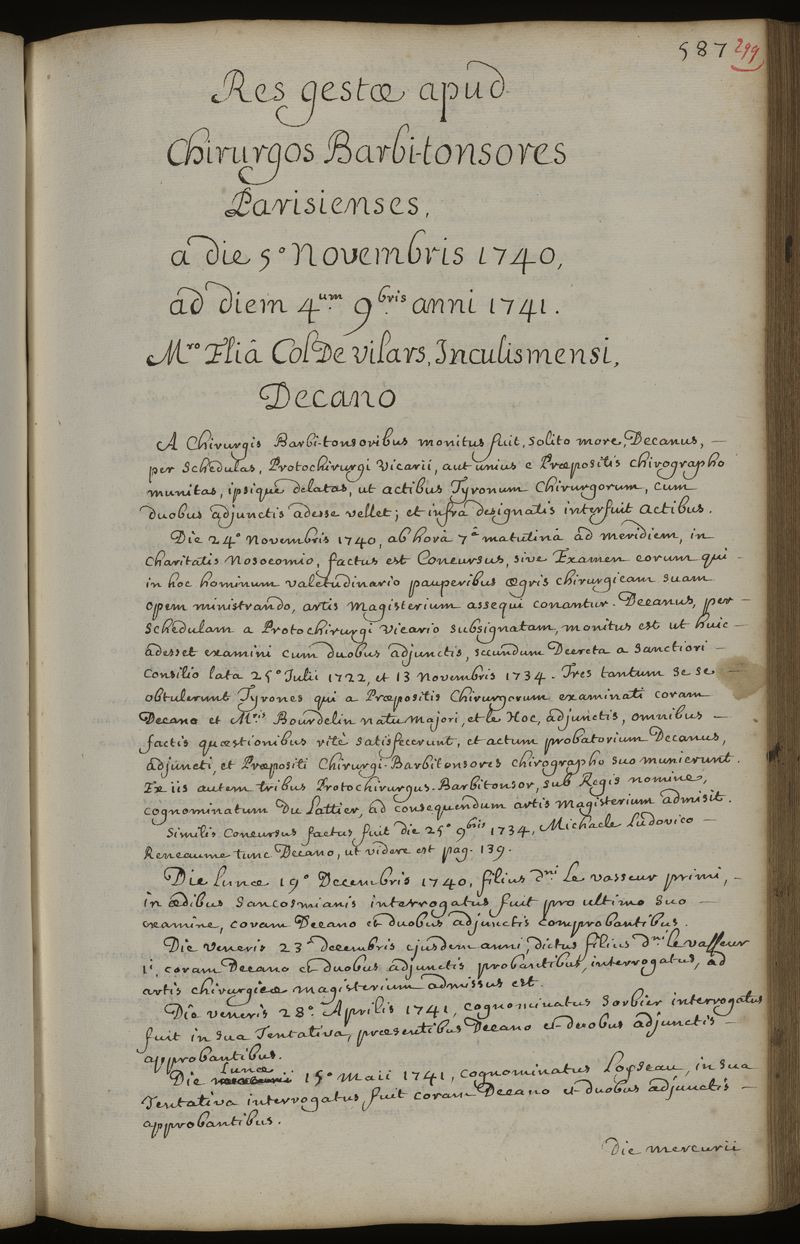 587 299
Res gestæ apud
Chirurgos Barbi-tonsores
Parisienses,
a die 5º Novembris 1740,
ad diem 4um 9bris anni 1741.
Mro Eliâ Col De vilars, Inculismensi,
Decano
A Chirurgis Barbi-tonsoribus monitus fuit, solito more, Decanus, —
per Schedulas, Protochirurgi Vicarii, aut unius e Præpositis chirographo
munitas, ipsique delatas, ut actibus Tyronum Chirurgorum, cum
duobus adjunctis adesse vellet; et infra designatis interfuit actibus.
Die 24º Novembris 1740, ab horâ 7â matutinâ ad meridiem, in
Charitatis Nosocomio, factus est Concursus, sive Examen eorum qui -
in hoc hominum valetudinario pauperibus ægris chirurgicam suam
opem ministrando, artis magisterium assequi conantur. Decanus, per —
Schedulam a Protochirurgi Vicario subsignatam, monitus est ut huic —
adesset examini cum duobus adjunctis, secundum Decreta a Sanctiori —
Consilio lata 25º Julii 1722, et 13 Novembris 1734. Tres tantum se se —
obtulerunt Tyrones qui a Præpositis Chirurgorum examinati coram
Decano et Mris Bourdelin natu majori, et le Hoc, adjunctis, omnibus —
factis quæstionibus ritè satisfecerunt, et actum probatorium Decanus,
adjuncti, et Præpositi Chirurgi-Barbitonsores chirographo suo munierunt.
Ex iis autem tribus Protochirurgus-Barbitonsor, sub Regis nomine,
cognominatum Du Lattier, ad consequendum artis magisterium admisit.
Similis Concursus factus fuit die 25º 9bris 1734, Michaele Ludovico —
Reneaume tunc Decano, ut videre est pag. 139.
Die Lunæ 19º Decembris 1740, filius dni Le vasseur primi, -
in ædibus Sancosmianis interrogatus fuit pro ultimo suo —
examine, coram Decano et duobus adjunctis comprobantibus.
Die veneris 23â decembris ejusdem anni, dictus filius dni le vasseur
1i, coram Decano et duobus adjunctis probantibus, interrogatus, ad
artis chirurgicæ magisterium admissus est.
Die veneris 28º Aprilis 1741, cognominatus Sorbier interrogatus
fuit in sua Tentativa, præsentibus Decano et duobus adjunctis —
approbantibus.
Die Lunæ 15º Maii 1741, cognominatus Loyseau, in sua
Tentativa interrogatus fuit coram Decano et duobus adjunctis —
approbantibus.
Die mercurii